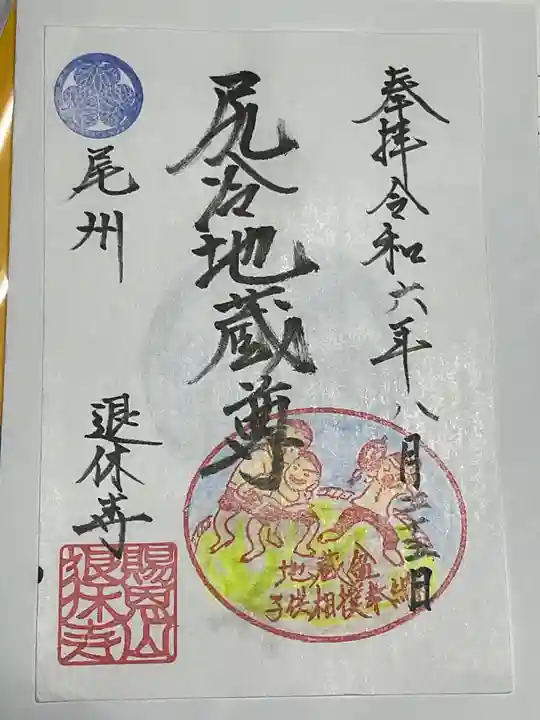 奉拝 令和六年八月二十五日
尻冷地蔵尊
尾州
退休寺
地蔵盆
子供相撲奉納
賜恩山
退休寺